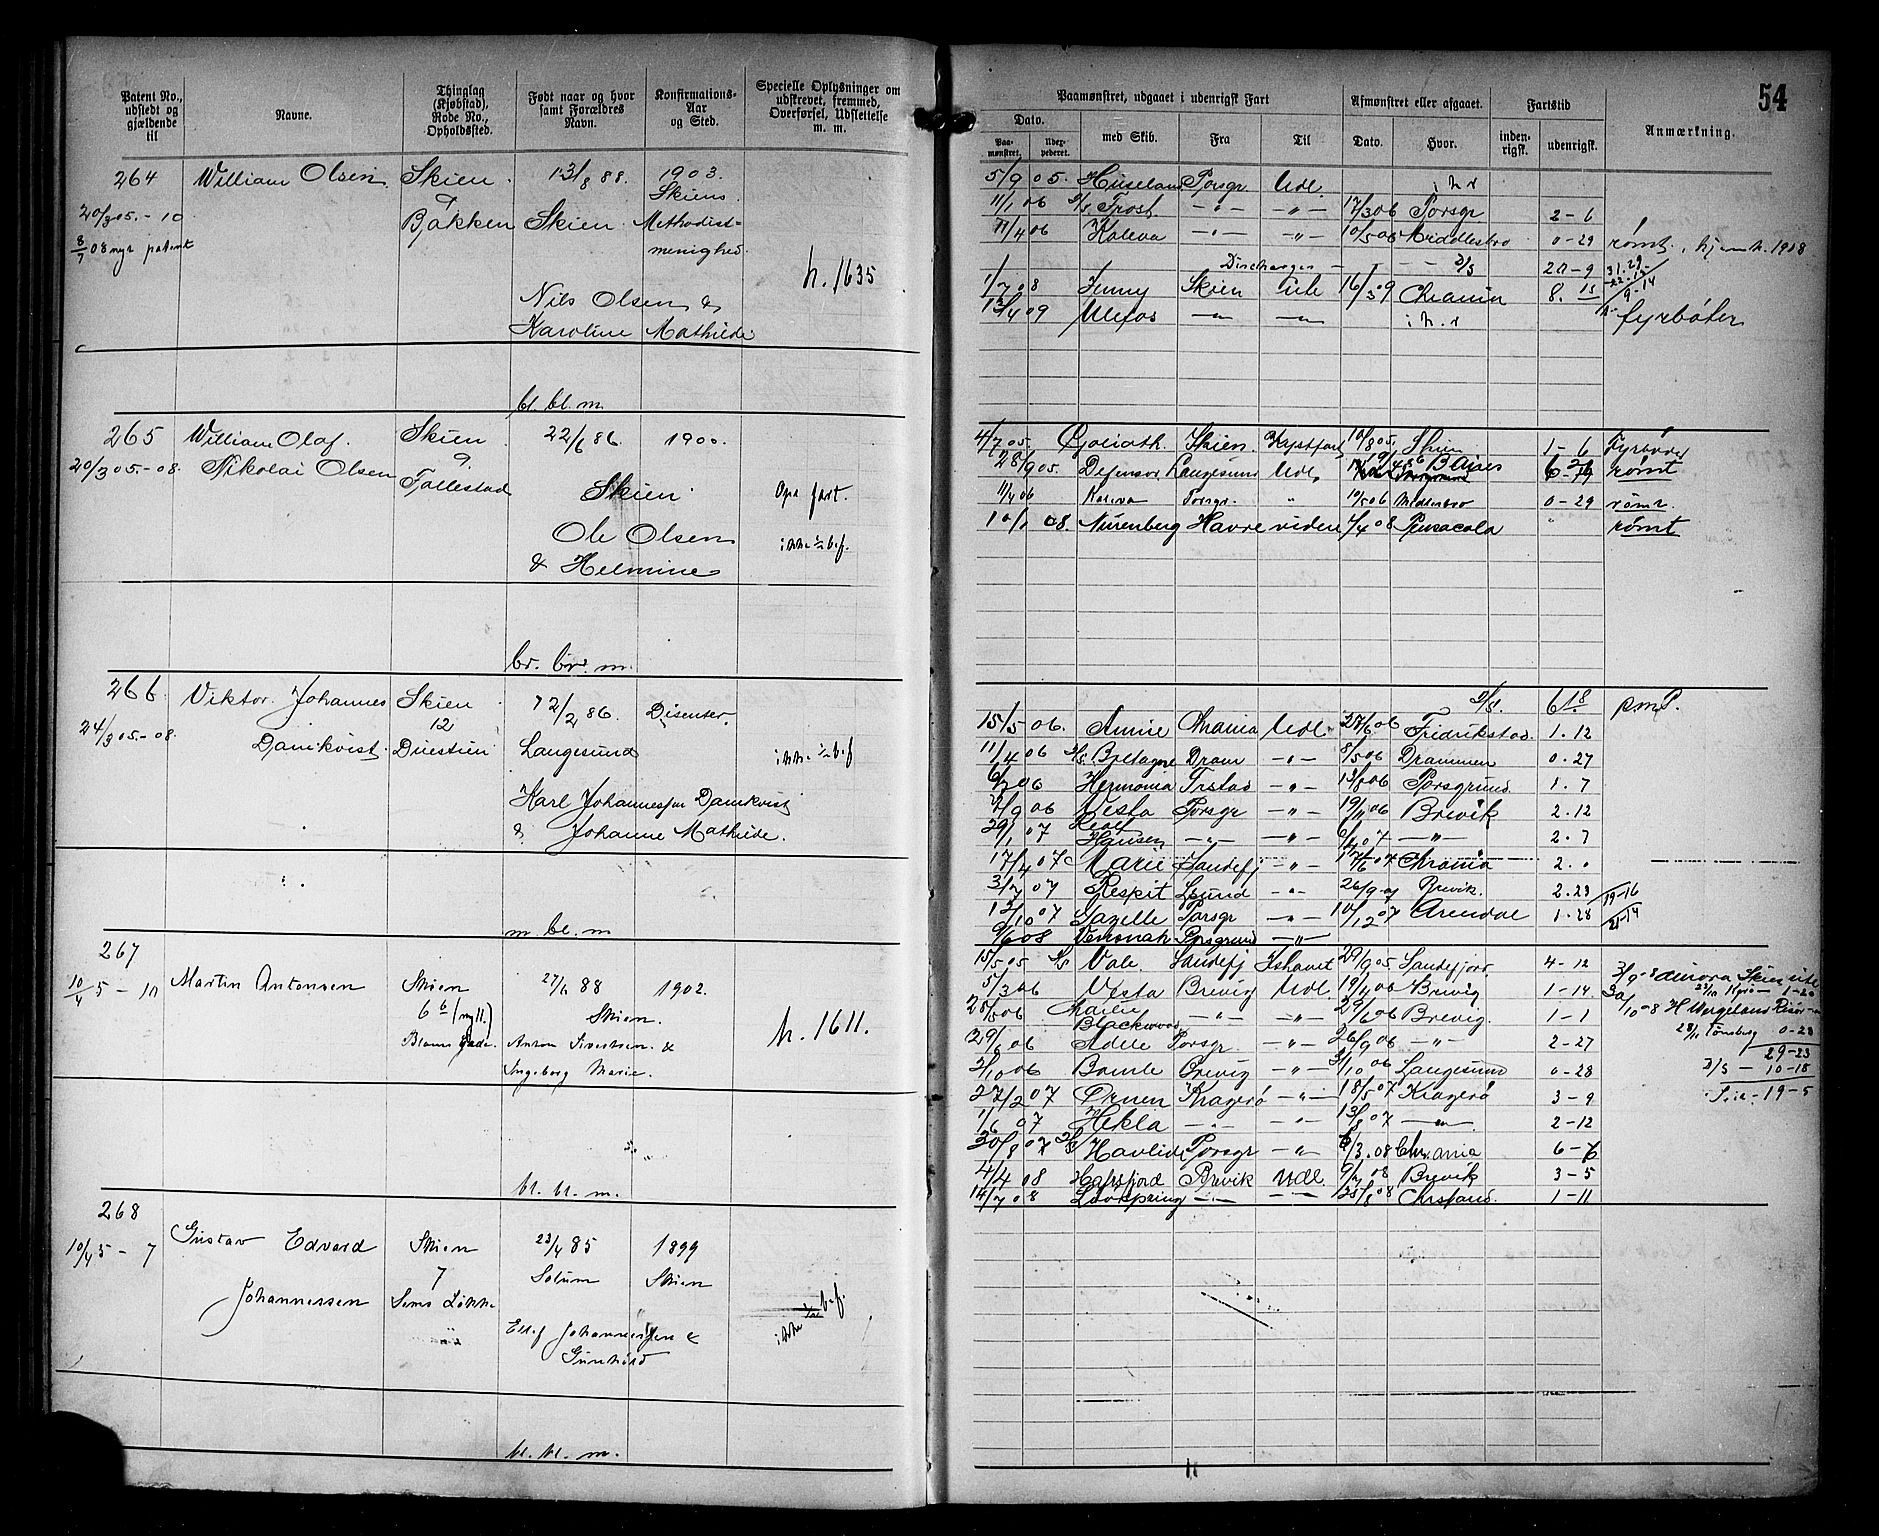 Patent No., udstedt og gjældende til
Navne.
Thinglag (Kjøbstad), Rode No., Opholdssted.
Født naar og hvor samt Forældres Navn.
Konfirmations- Aar og Sted.
Specielle Oplysninger om udskrevet, fremmed, Overførsel, Udslettelse m. m.
264 William Olsen Skien 13/8 88. 1903.
Skiens
20/3 05. - 10 Bakken Skien Methodist-
8/7 08 nyt patent menighed.
h. 1635
Nils Olsen &
Karoline Mathilde
bl. bl. m.
265 William Olaf Skien 22/6 86 1900.
20/3 05 - 08. Nikolai Olsen 9.
Follestad
Skien Opg fart.
Ole Olsen ikke 1/2 bef.
& Helmine
br. br. m.
266 Viktor Johannes Skien 12/2 86. Disenter.
12
24/3 05 - 08. Damkvist Duestien Langesund ikke 1/2 bef
Karl Johannessen Damkvist
& Johanne Mathilde.
m. bl. m
267
10/4 5 - 10 Martin Antonsen Skien 27/6 88 1902.
6 b (ny 11.) Skien. h. 1611.
Anton Sivertsen &
Ingeborg Marie.
bl. bl. m.
268
10/4 5 - 7 Gustav Edvard Skien 23/4 85 1899
7 Solum Skien
Johannessen Sems Løkke
ikke 1/2 bef.
Ellef Johannessen &
Gunhild
bl. bl. m.
54
Paamønstret, udgaaet i udenrigsk Fart
Afmønstret eller afgaaet.
Fartstid
Anmærkning.
Dato.
Paa- mønstret.
Udex- pederet.
med Skib.
Fra
Til
Dato.
Hvor.
inden- rigsk.
udenrigsk.
5/9 05. Porsgr Udl. i h r
11/1 06 D/S Frost - " - - " - 17/3 06 Porsgr 2 - 6
06 Kaleva - " - - " - 10/5 06 Middlesbro 0 - 29 rømt, hjemk. 1908
D/S 20 - 9 31.29
1/7 08 Jenny Skien Udl 16/3 09 Chrania 8. 15 9 - 14
13/4 09 Ulefos - " - - " - i h. r fyrbøter
4/7 05. Goliath. Skien. Kystfart 10/8 05. Skien 1 - 6 Fyrbøder
28/9 05. Defensor Langesund Udl. B Aires rømt
11/4 06 Kaleva Porsgr. " 10/5 06 Middlesbro 0 - 29 rømt.
10/1 08. Nürenberg Havre videre 7/4 08 Pensacola " rømt
D/S. 6 18 p.m.P.
15/5 06. Annie Chrania Udl. 27/6 06 Fridrikstad 1. 12
11/4 06 D/S Bretagne Dram - " - 8/5 06 Drammen 0. 27
06 Hermonia Frstad - " - 13/8 06 Porsgrund 1. 7
7/9 06 Vesta Porsgr - " - 19/11 06 Brevik 2. 12
29/1 07 Hansen - " - - " - 07 - " - 2. 7
17/4 07 Marie Sandefj - " - 17/6 07 Chrania 2. 0
3/7 07 Respit Lgsund - " - 26/9 07 Brevik. 2. 23 19 - 16
12/10 07 Gazelle Porsgr - " - 10/12 07 Arendal 1. 28 21 - 14
9/6 08 Porsgrund - " -
15/5 05 D/S Vale. Sandefj Ishavet 29/9 05 Sandefjord. 4 - 12
5/3 06 Vesta Brevig Udl. 19/4 06 Brevig 1 - 14. 3/9 - 8 Aurora Skien Udl
28/5 06 Blackwood - " - - " - 29/6 06 Brevig. 1 - 1 30/10 - 8 H Wergeland Risør
29/6 06 Adele Porsgr. - " - 26/9 06 - " - 2 - 27 28/11 Tønsberg 0 - 28
29 - 23
2/10 06 Bamle Brevig - " - 06 Langesund 0 - 28 D/S - 10 - 18
27/2 07 Ørnen Kragerø - " - 18/5 07 Kragerø 3 - 9 19 - 5
1/6 07 Hekla - " - - " - 13/8 07 - " - 2 - 12
30/8 07 D/S Havlide Porsgr - " - 6/3.08 Chrania 6 - 6
4/4 08 Hafrsfjord Brevik Udl. 9/7 08 Brevik 3 - 5
14/7 08 Lövspring - " - - " - 25/8 08 Chrsand. 1 - 11